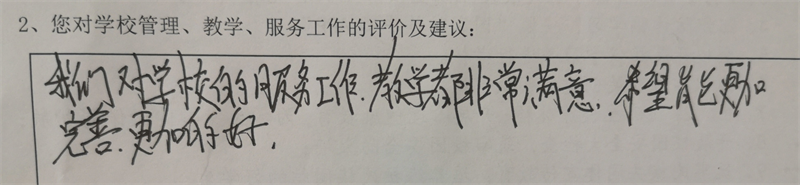 2、您对学校管理、教学、服务工作的评价及建议:
我们对学校的服务工作、教学都非常满意,希望能更加
完善、更加好。